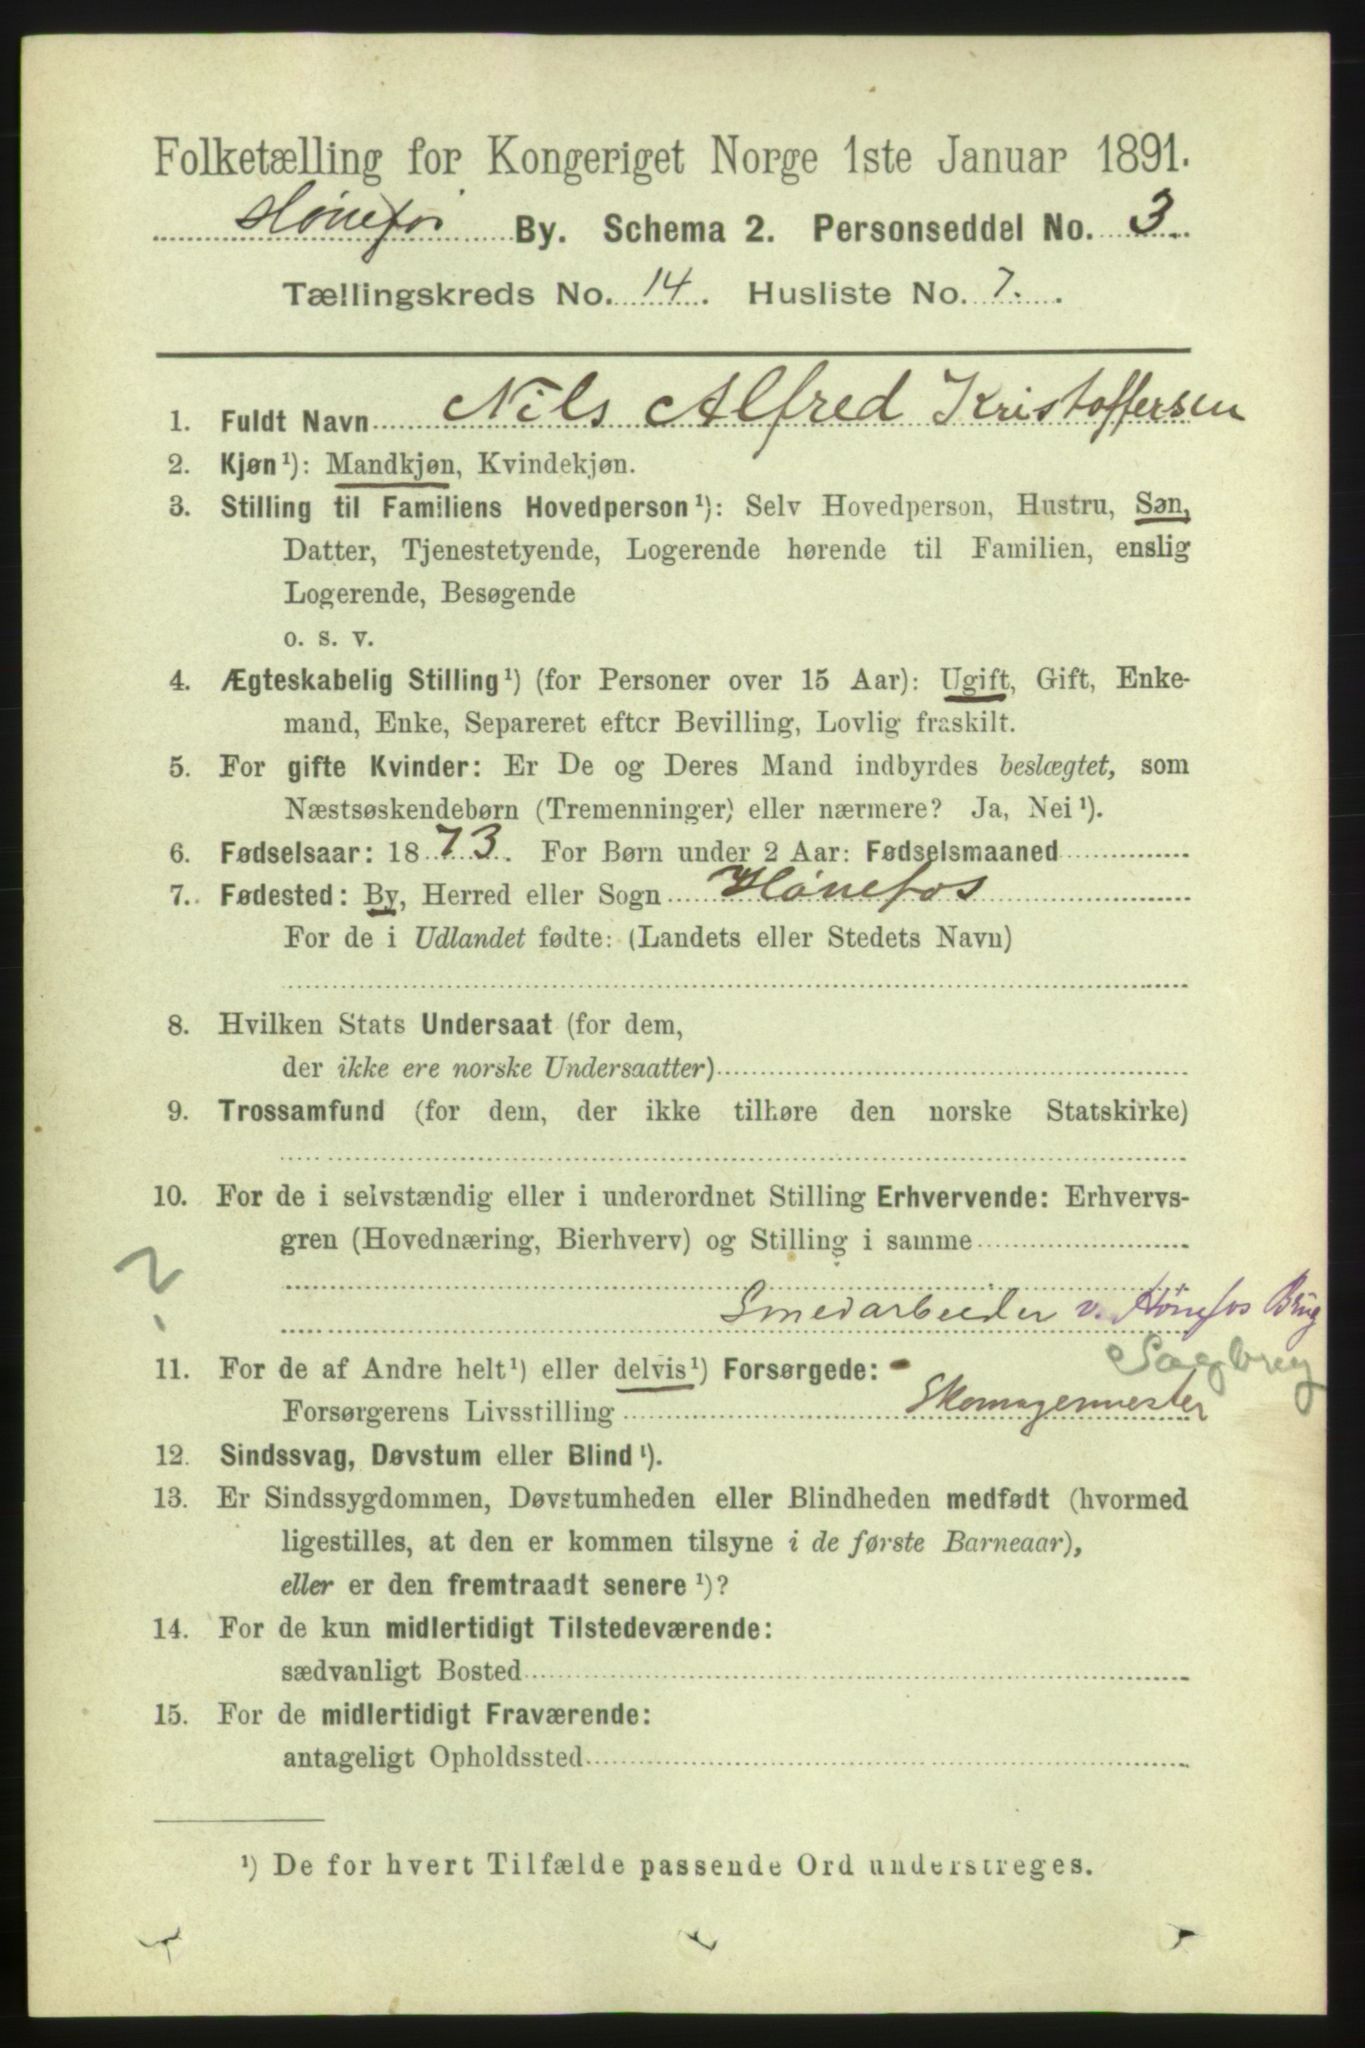 Folketælling for Kongeriget Norge 1ste Januar 1891.
Hønefos By. Schema 2. Personseddel No. 3.
Tællingskreds No. 14. Husliste No. 7.
1. Fuldt Navn Nils Alfred Kristoffersen
2. Kjøn¹): Mandkjøn, Kvindekjøn.
3. Stilling til Familiens Hovedperson¹): Selv Hovedperson, Hustru, Søn,
Datter, Tjenestetyende, Logerende hørende til Familien, enslig
Logerende, Besøgende
o. s. v.
4. Ægteskabelig Stilling¹) (for Personer over 15 Aar): Ugift, Gift, Enke-
mand, Enke, Separeret efter Bevilling, Lovlig fraskilt.
5. For gifte Kvinder: Er De og Deres Mand indbyrdes beslægtet, som
Næstsøskendebørn (Tremenninger) eller nærmere? Ja, Nei¹).
6. Fødselsaar: 1873. For Børn under 2 Aar: Fødselsmaaned
7. Fødested: By, Herred eller Sogn Hønefos
For de i Udlandet fødte: (Landets eller Stedets Navn)
8. Hvilken Stats Undersaat (for dem,
der ikke ere norske Undersaatter)
9. Trossamfund (for dem, der ikke tilhøre den norske Statskirke)
10. For de i selvstændig eller i underordnet Stilling Erhvervende: Erhvervs-
gren (Hovednæring, Bierhverv) og Stilling i samme
?
Smedarbeider v. Hønefos Brug
Sagbrug
11. For de af Andre helt¹) eller delvis¹) Forsørgede:
Forsørgerens Livsstilling Skomagermester
12. Sindssvag, Døvstum eller Blind¹).
13. Er Sindssygdommen, Døvstumheden eller Blindheden medfødt (hvormed
ligestilles, at den er kommen tilsyne i de første Barneaar),
eller er den fremtraadt senere¹)?
14. For de kun midlertidigt Tilstedeværende:
sædvanligt Bosted
15. For de midlertidigt Fraværende:
antageligt Opholdssted
¹) De for hvert Tilfælde passende Ord understreges.